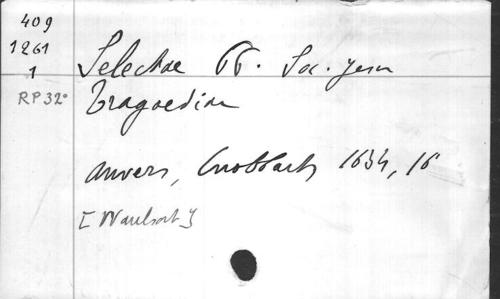 409
1261
1
RP32°
Selectae PP. Soc. Jesu
tragoediae
Anvers, Cnobbart, 1634, 16
[Waulsort]